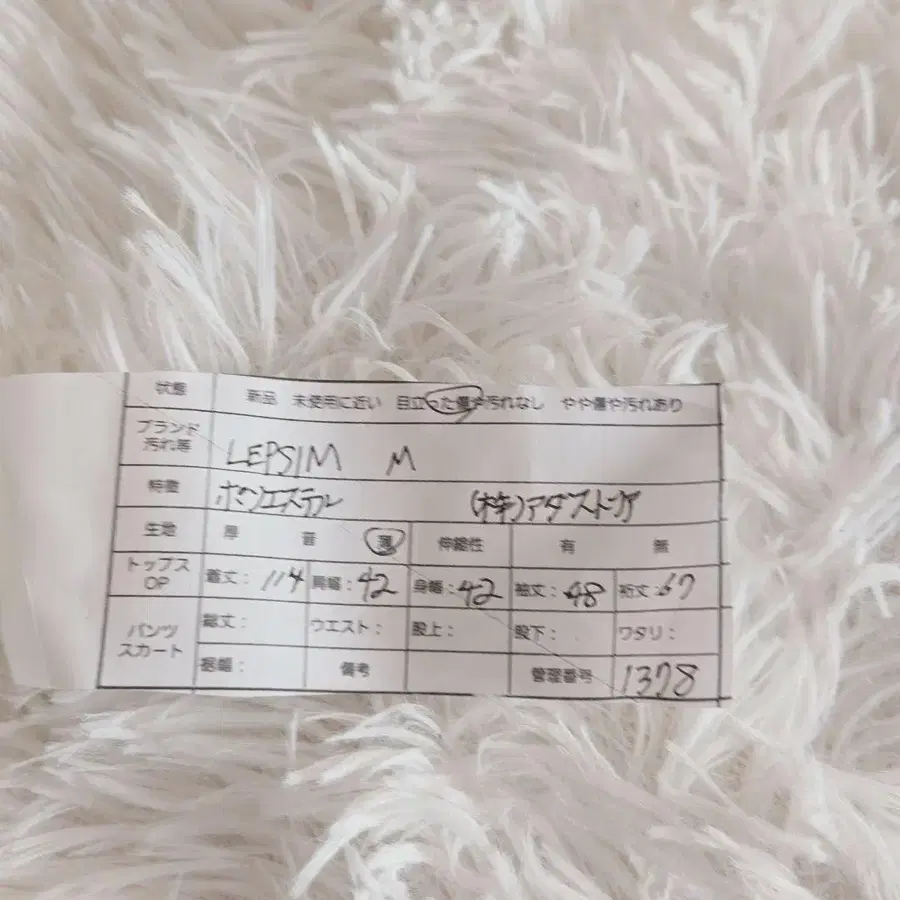 状態 新品 未使用に近い 目立った傷や汚れなし やや傷や汚れあり
ブランド
汚れ等 LEPSIM M
特徴 ポリエステル (株)アダストリア
生地 厚 普 薄 伸縮性 有 無
トップス
OP 着丈: 114 肩幅: 42 身幅: 42 袖丈: 48 裄丈: 67
パンツ
スカート 総丈: ウエスト: 股上: 股下: ワタリ:
裾幅: 備考 管理番号 1378